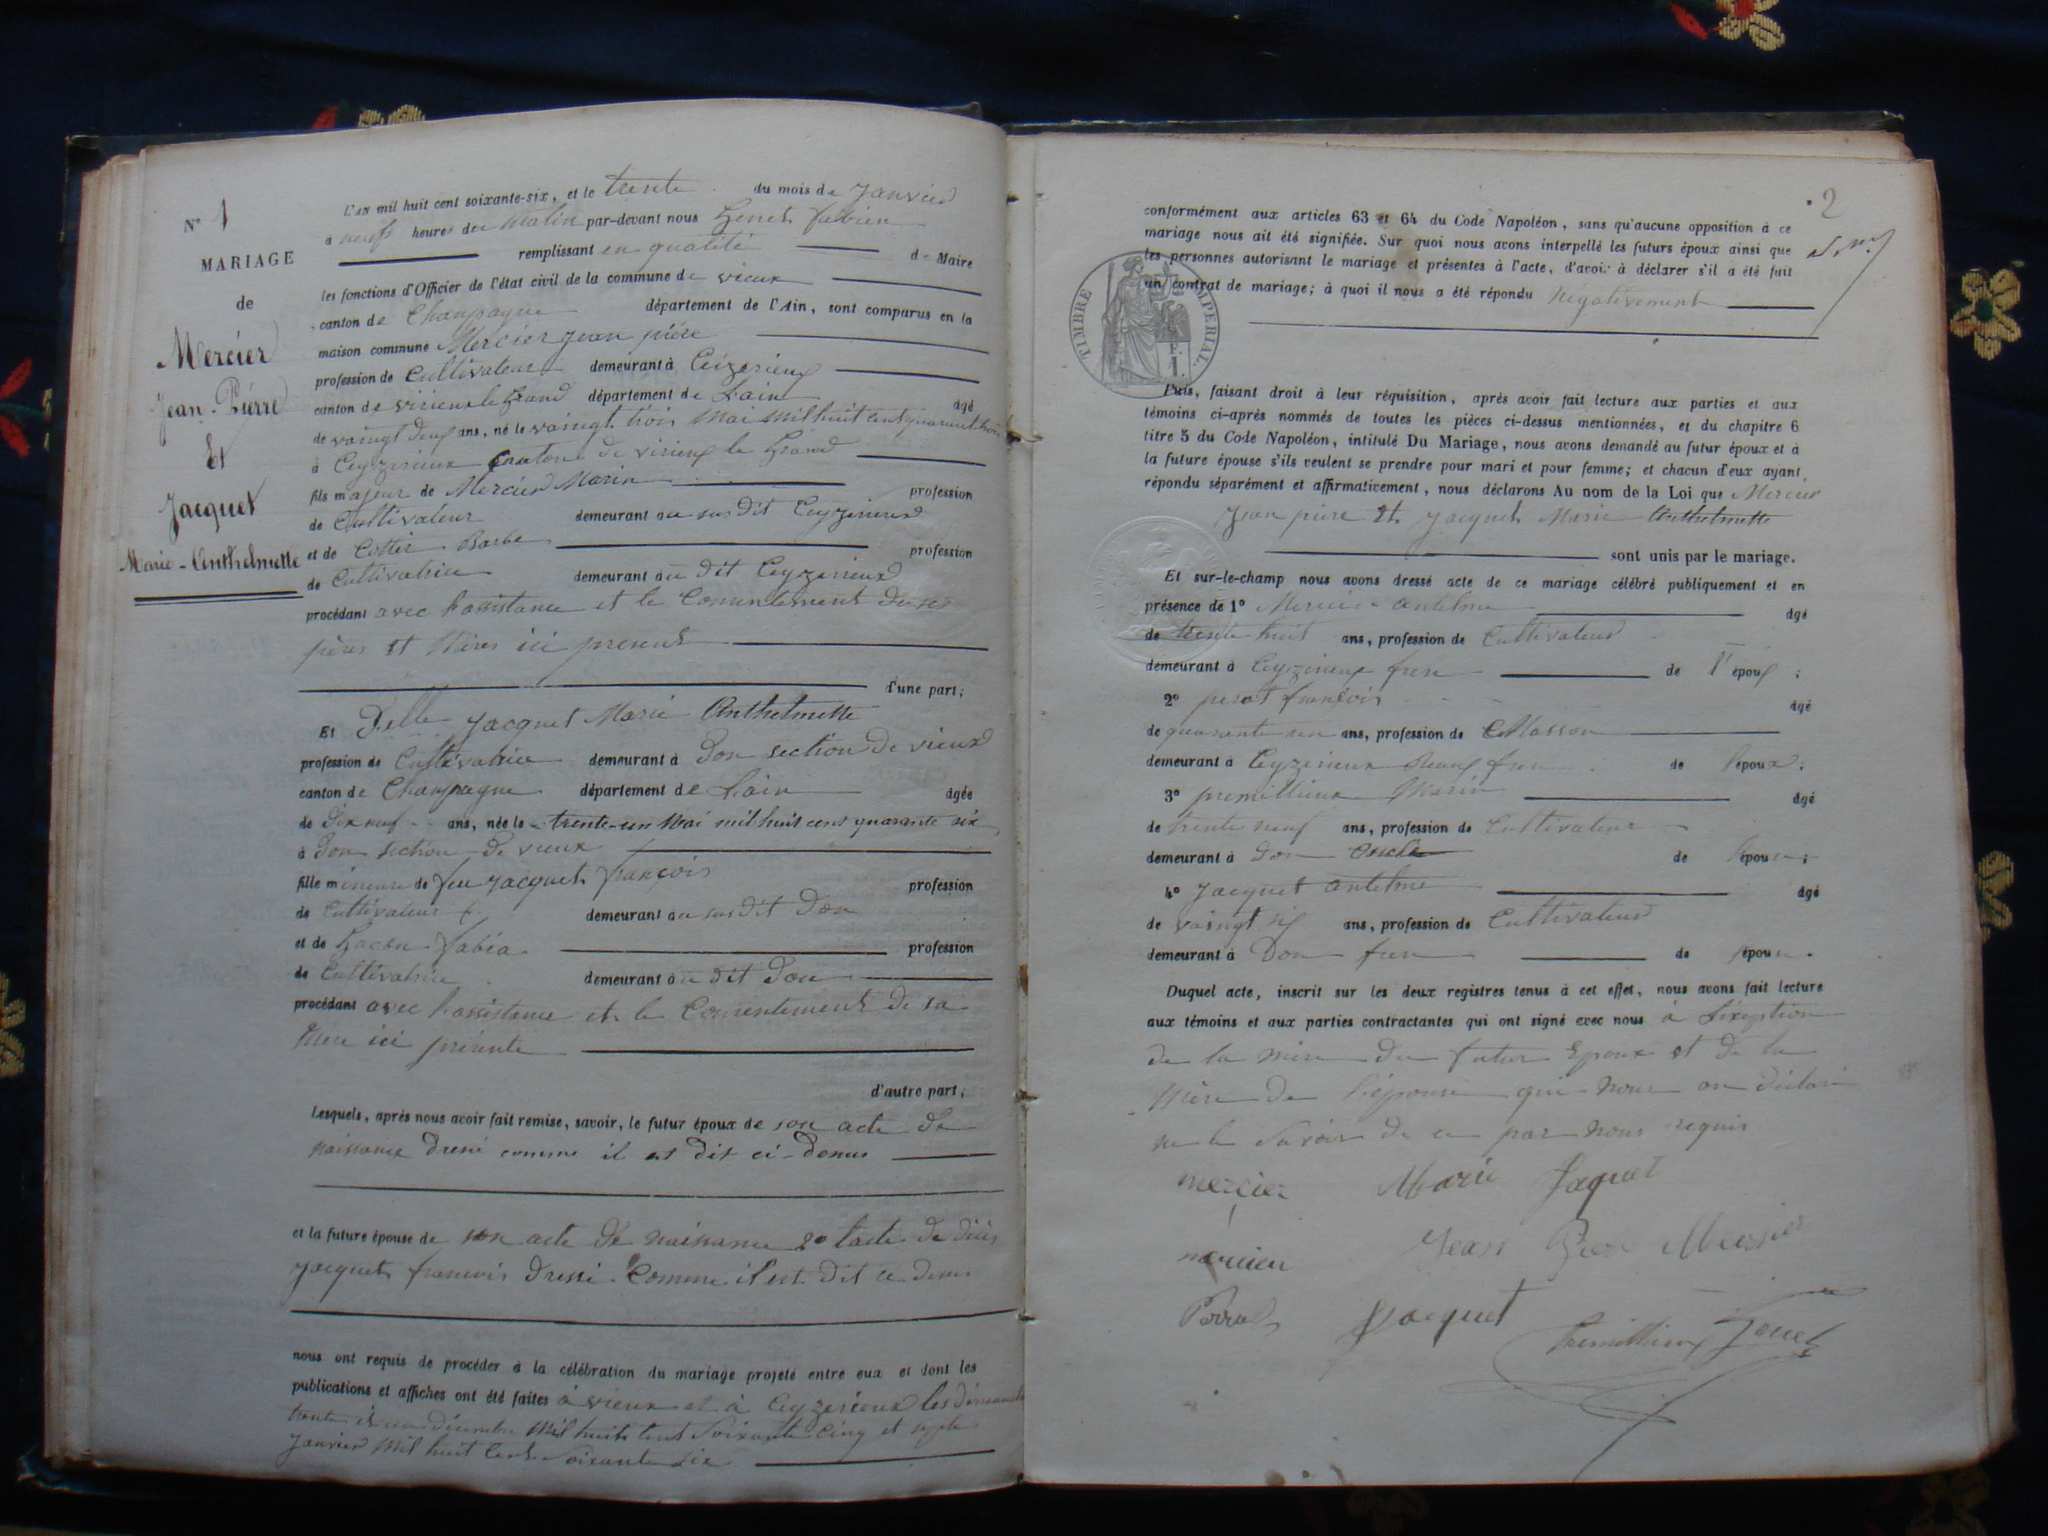 N° 1
MARIAGE
de
Mercier
Jean-Pierre
Et
Jacquet
Marie-Anthelmette
L'an mil huit cent soixante-six, et le trente du mois de Janvier
à neuf heures du matin par-devant nous fabien
remplissant en qualité de Maire
les fonctions d'Officier de l'état civil de la commune de vieux
canton de Champagne département de l'Ain, sont comparus en la
maison commune Mercier jean pière
profession de Cultivateur demeurant à Ceizerieux
canton de virieux le Grand département de Lain âgé
de vaingt deux ans, né le vaingt trois Mai mil huit cent quarant trois
à Ceyzerieux Canton de virieux le Grand
fils majeur de Mercier Marin profession
de Cultivateur demeurant au sus dit Ceyzerieux
et de Cottin Barbe profession
de Cultivatrice demeurant au dit Ceyzerieux
procédant avec l'assistance et le Consentement de ses
pères et Mères ici present
d'une part;
Et Delle Jacquet Marie Anthelmette
profession de Cultivatrice demeurant à Don section de vieux
canton de Champagne département de Lain âgée
de dix neuf ans, née le trente-un Mai mil huit cent quarante six
à Don section de vieux
fille mineure de feu jacquet françois profession
de Cultivateur demeurant au sus dit Don
et de fabia profession
de Cultivatrice demeurant au dit Don
procédant avec l'assistance et le Consentement de sa
Mere ici présente
d'autre part;
Lesquels, après nous avoir fait remise, savoir, le futur époux de son acte de
naissance dressé comme il est dit ci-dessus
et la future épouse de son acte de naissance 2° lacte de décès
jacquet francois dressé Comme il est dit ce dessus
nous ont requis de procéder à la célébration du mariage projeté entre eux et dont les
publications et affiches ont été faites à vieux et à Ceyzerieux les dimanche
trente et un décembre Mil huit cent Soixante Cinq et sept
Janvier Mil huit Cent Soixante Six
2
conformément aux articles 63 et 64 du Code Napoléon, sans qu'aucune opposition à ce
mariage nous ait été signifiée. Sur quoi nous avons interpellé les futurs époux ainsi que
les personnes autorisant le mariage et présentes à l'acte, d'avoir à déclarer s'il a été fait
un contrat de mariage; à quoi il nous a été répondu négativement
TIMBRE IMPERIAL
Puis, faisant droit à leur réquisition, après avoir fait lecture aux parties et aux
témoins ci-après nommés de toutes les pièces ci-dessus mentionnées, et du chapitre 6
titre 5 du Code Napoléon, intitulé Du Mariage, nous avons demandé au futur époux et à
la future épouse s'ils veulent se prendre pour mari et pour femme; et chacun d'eux ayant
répondu séparément et affirmativement, nous déclarons Au nom de la Loi que Mercier
Jean pière Et Jacquet Marie Anthelmette
sont unis par le mariage.
Et sur-le-champ nous avons dressé acte de ce mariage célébré publiquement et en
présence de 1° Mercier antelme âgé
de trente huit ans, profession de Cultivateur
demeurant à Ceyzerieux frere de l'époux;
2° françois âgé
de quarante un ans, profession de Masson
demeurant à Ceyzerieux Beau frere de lépoux;
3° premillieux Marin âgé
de trente neuf ans, profession de Cultivateur
demeurant à Don Oncle de lépouse;
4° Jacquet antelme âgé
de vaingt six ans, profession de Cultivateur
demeurant à Don frere de lépouse.
Duquel acte, inscrit sur les deux registres tenus à cet effet, nous avons fait lecture
aux témoins et aux parties contractantes qui ont signé avec nous à l'éxeption
de la mère du futur Epoux et de la
Mère de l'épouse qui nous on déclaré
ne le Savoir de ce par nous requis
mercier Marie Jaquet
mercier Jean Mercier
Jacquet Premillieux